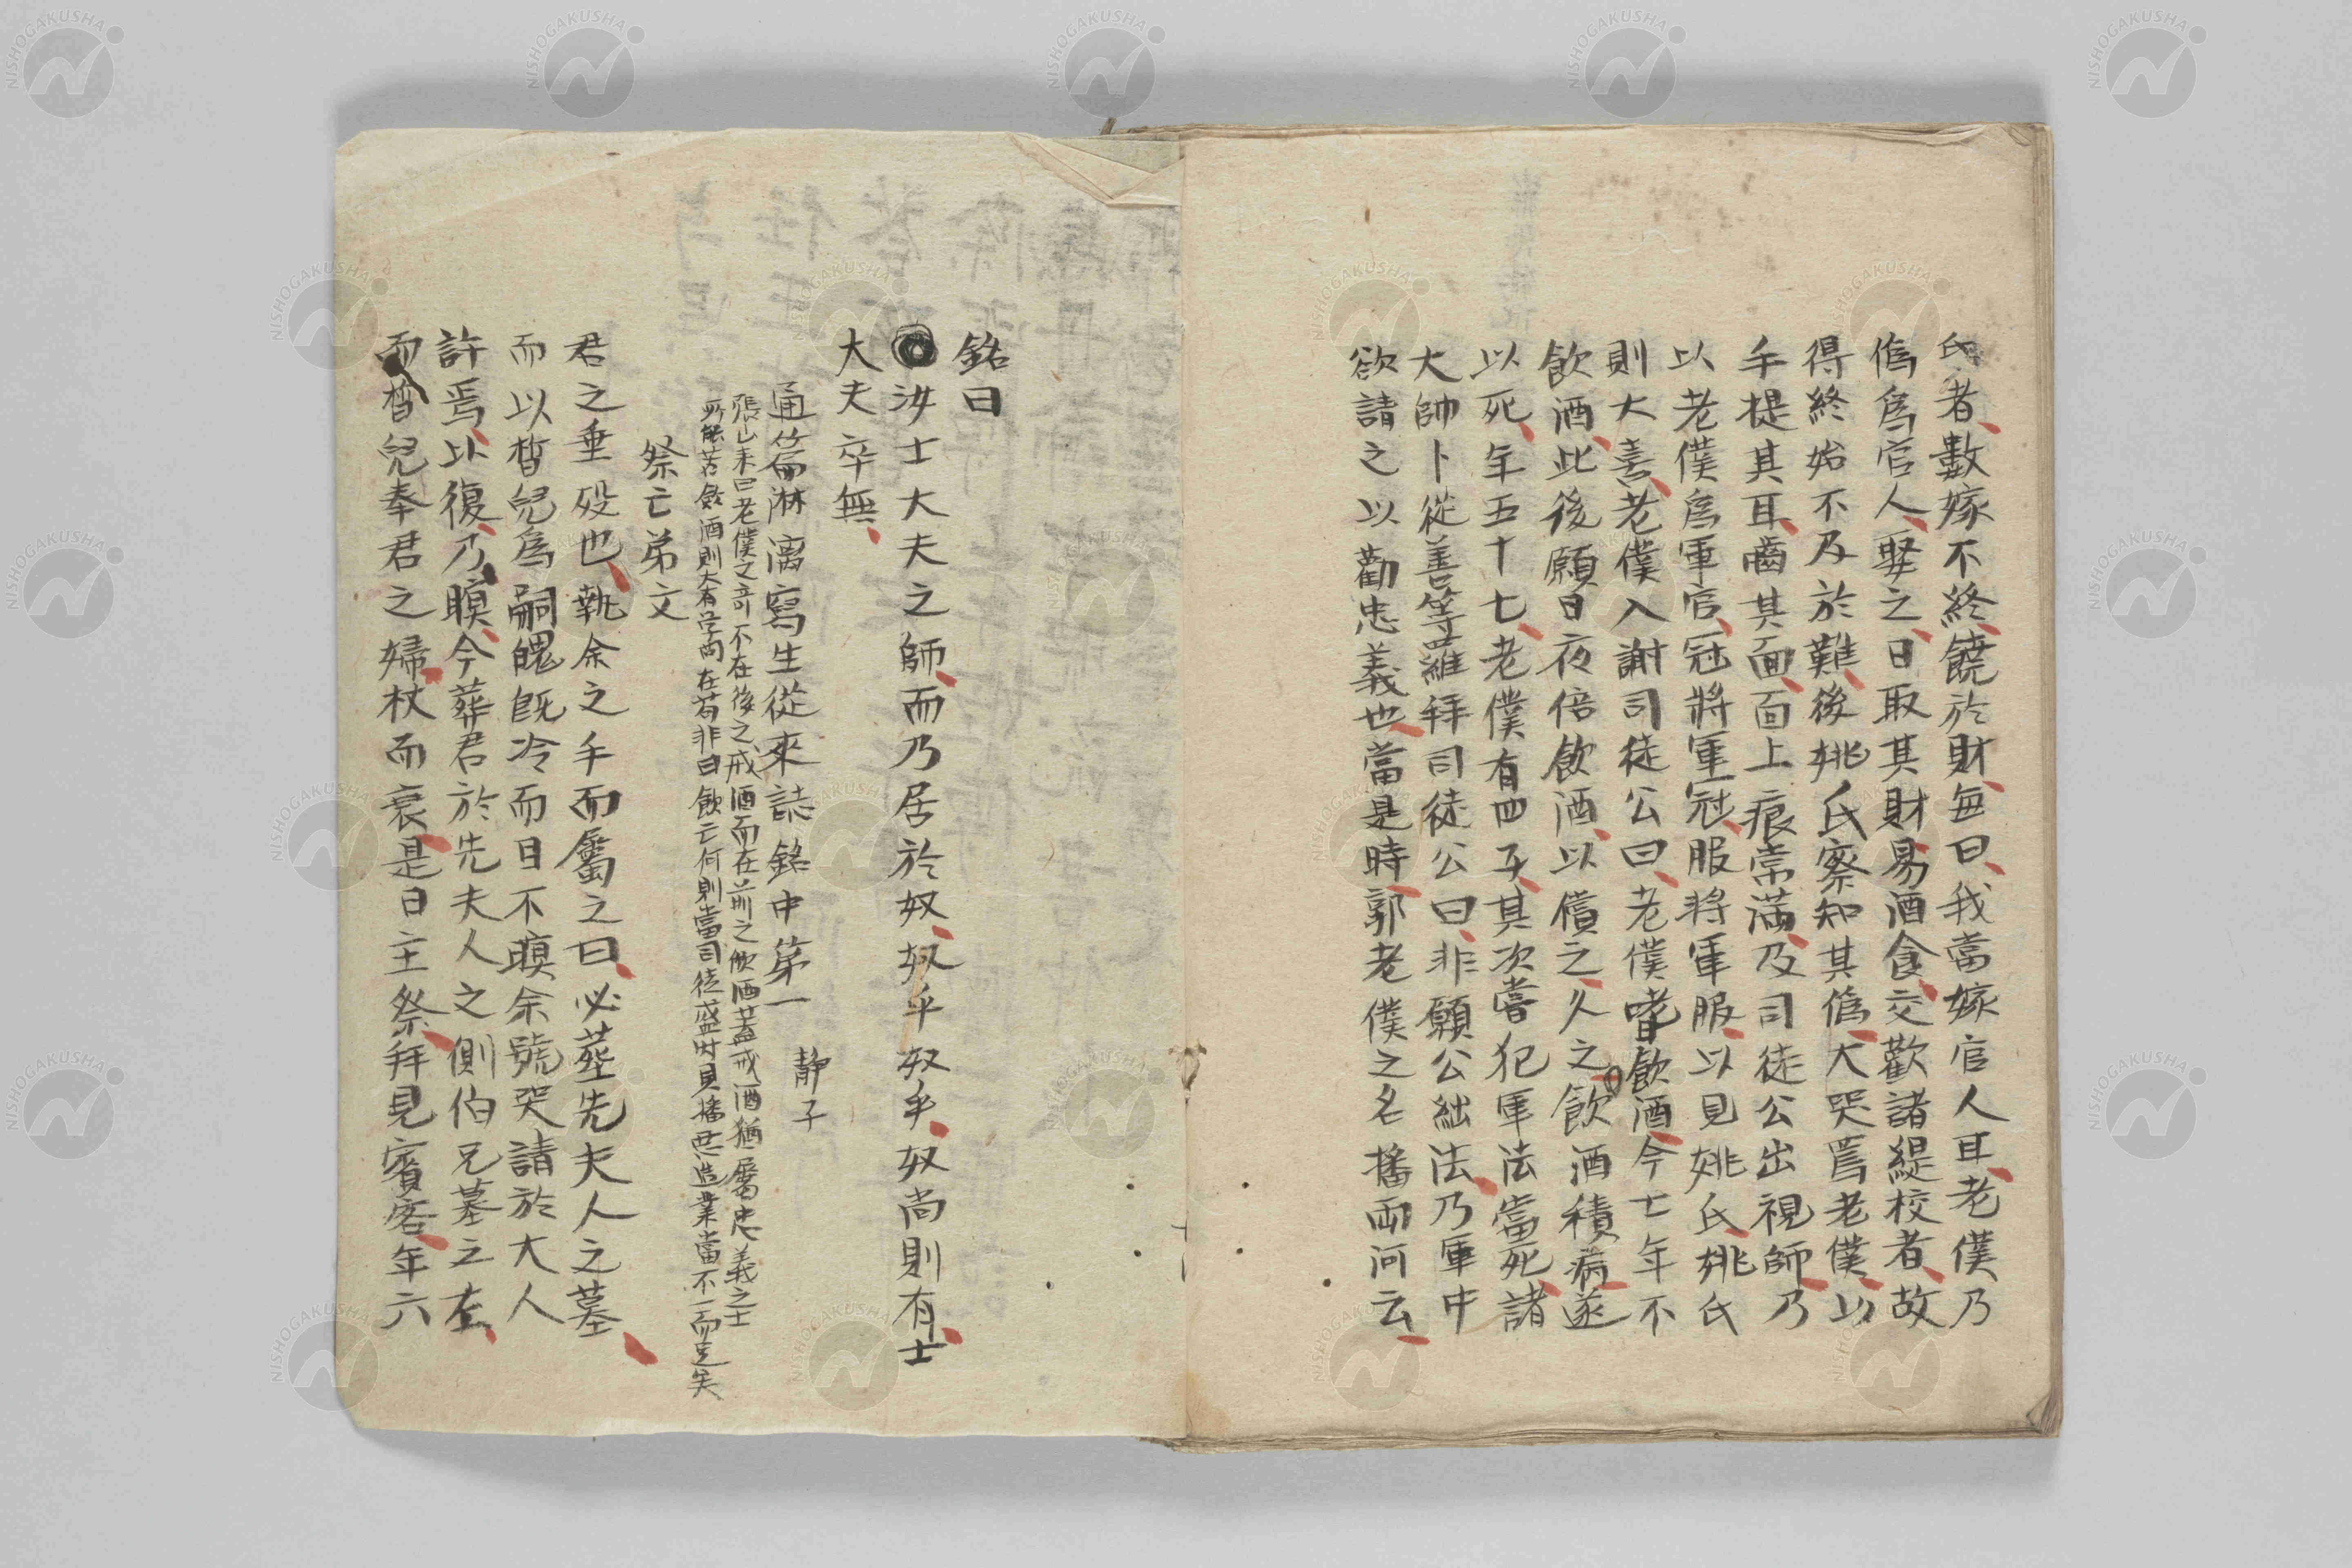 氏者數嫁不終饒於財每曰我當嫁官人耳老僕乃
偽爲官人娶之日取其財易酒食交歡諸緹校者故
得終始不及於難後姚氏察知其偽大哭詈老僕以
手提其耳齧其面面上痕常滿及司徒公出視師乃
以老僕爲軍官冠將軍冠服將軍服以見姚氏姚氏
則大喜老僕入謝司徒公曰老僕嗜飲酒今七年不
飲酒此後願日夜倍飲酒以償之久之飲酒積病遂
以死年五十七老僕有四子其次嘗犯軍法當死諸
大帥卜從善等羅拜司徒公曰非願公絀法乃軍中
欲請之以勸忠義也當是時郭老僕之名播兩河云
銘曰
汝士大夫之師而乃居於奴奴乎奴乎奴尚則有士
大夫卒無
通篇淋漓寫生從來誌銘中第一 靜子
張山來曰老僕之奇不在後之戒酒而在前之飲酒蓋戒酒猶屬忠義之士
所能若飲酒則大有學問在若非日飲亡何則當司徒盛時其播惡造業當不一而足矣
祭亡弟文
君之垂歿也執余之手而屬之曰必葬先夫人之墓
而以晳兒爲嗣魄既冷而目不瞑余號哭請於大人
許焉以復乃瞑今葬君於先夫人之側伯兄墓之左
而晳兒奉君之婦杖而衰是日主祭拜見賓客年六
NISHOGAKUSHA